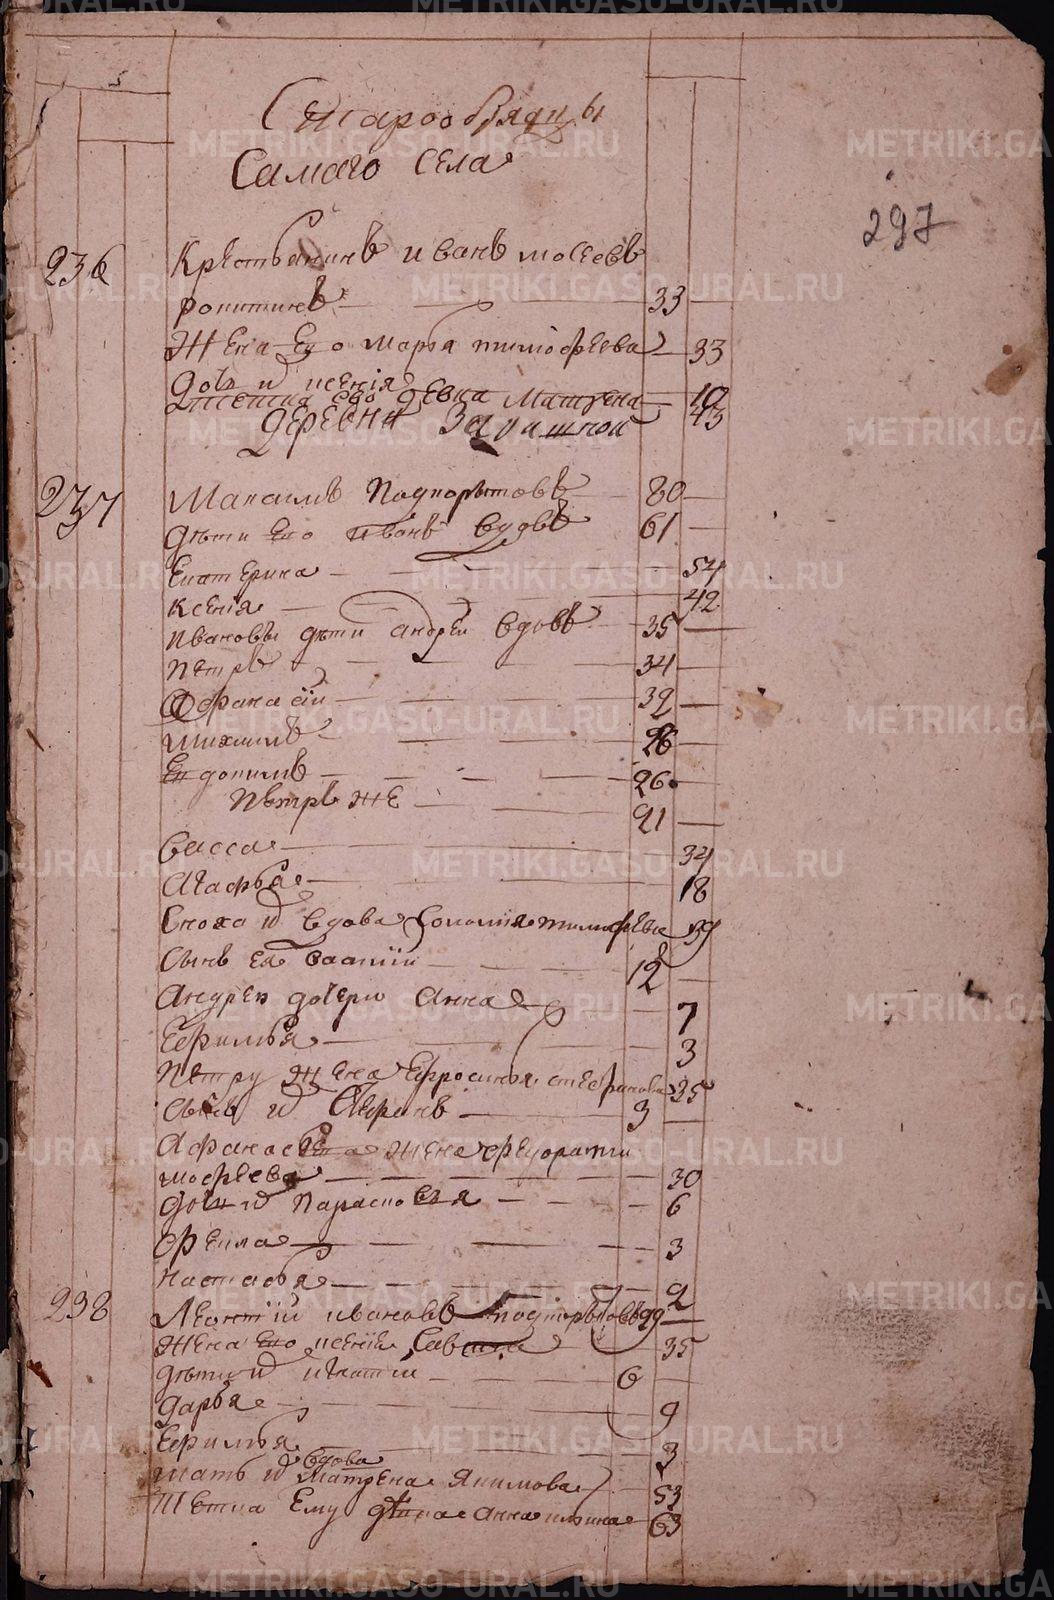 Старообрядцы
Самаго Села
297
236 Крестьянинъ иванъ мосеевъ
ропитинъ — 33 —
Жена Его марья тимофеева — 33
дочь и ксенія — 10
тетка его девка Матрена — 43
деревни
237 Подкорытовъ 80 —
дети Его иванъ вдовъ 61 —
Екатерина — 54
Ксенія — 42
ивановы дети андреи вдовъ 35 —
петръ — 34 —
афанасіи — 32 —
михаилъ —
Евдокимъ — 26 —
петръ же — 21 —
васса — 34
агафья — 18
Сноха и вдова тимофеева 39
Сынъ Ея 12 —
андрея дочери анна — 7
Ефимья — 3
петру жена Ефросинья стефанова 25
Сынъ и — 3 —
афанасья жена федора тимофеева — 30
дочь и парасковья — 6
фекла — 3
настасья — 2
238 Леонтіи ивановъ подкорытовъ 39 —
Жена Его ксения 35
дети и игнатии — 6 —
дарья — 9
Ефимья — 3
мать и вдова матрена якимова — 53
тетка Ему девка анна 63
METRIKI.GASO-URAL.RU